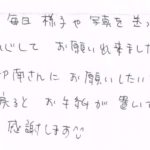 毎日 様子や写真を送
じして お願い出来ました
南さんに お願いしたい
戻ると お手紙が 置いて
感謝します